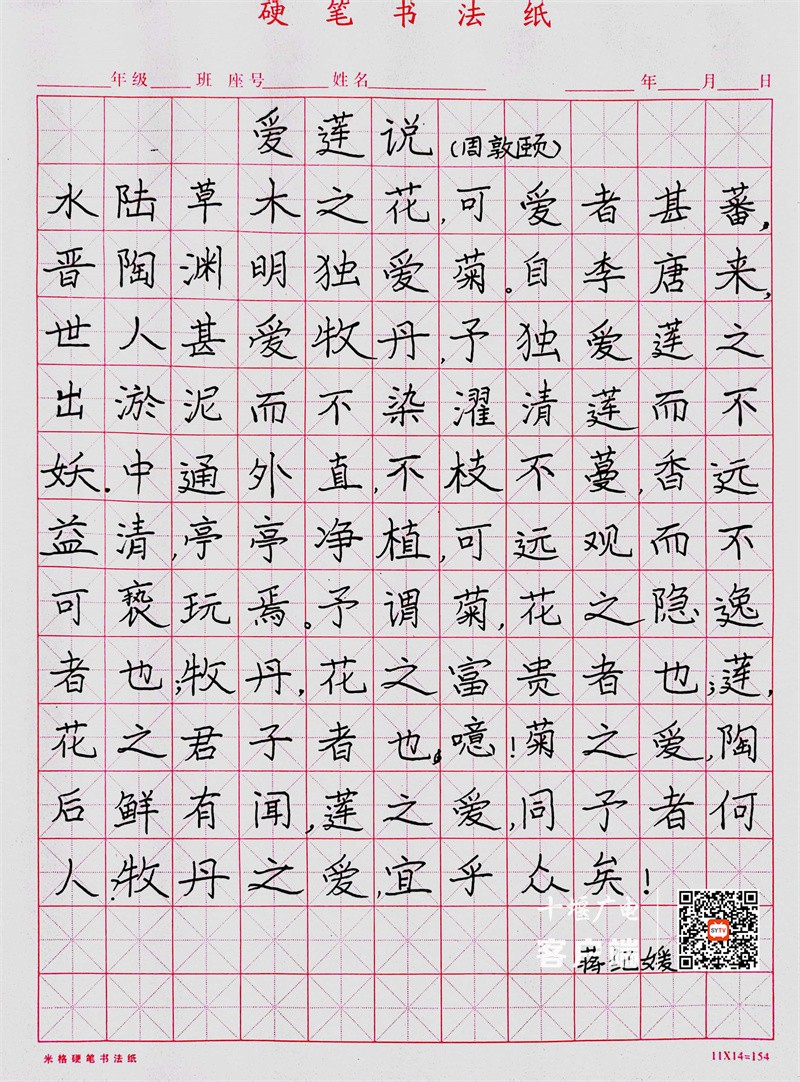 硬笔书法纸
年级 班 座号 姓名 年 月 日
爱莲说(周敦颐)
水陆草木之花,可爱者甚蕃,
晋陶渊明独爱菊。自李唐来,
世人甚爱牧丹,予独爱莲之
出淤泥而不染濯清莲而不
妖.中通外直,不枝不蔓,香远
益清,亭亭净植,可远观而不
可亵玩焉。予谓菊,花之隐逸
者也;牧丹,花之富贵者也;莲,
花之君子者也。噫!菊之爱,陶
后鲜有闻,莲之爱,同予者何
人.牧丹之爱,宜乎众矣!
十堰广电
客户端
SYTV
蒋 媛
米格硬笔书法纸 11X14=154